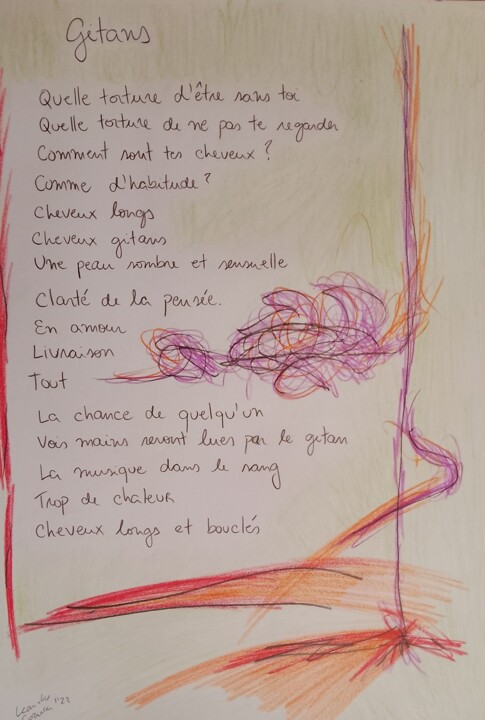 Gitans
Quelle torture d'être sans toi
Quelle torture de ne pas te regarder
Comment sont tes cheveux ?
Comme d'habitude ?
Cheveux longs
Cheveux gitans
Une peau sombre et sensuelle
Clarté de la pensée.
En amour
Livraison
Tout
La chance de quelqu'un
Vois mains seront lues par le gitan
La musique dans le sang
Trop de chaleur
Cheveux longs et bouclés
'22